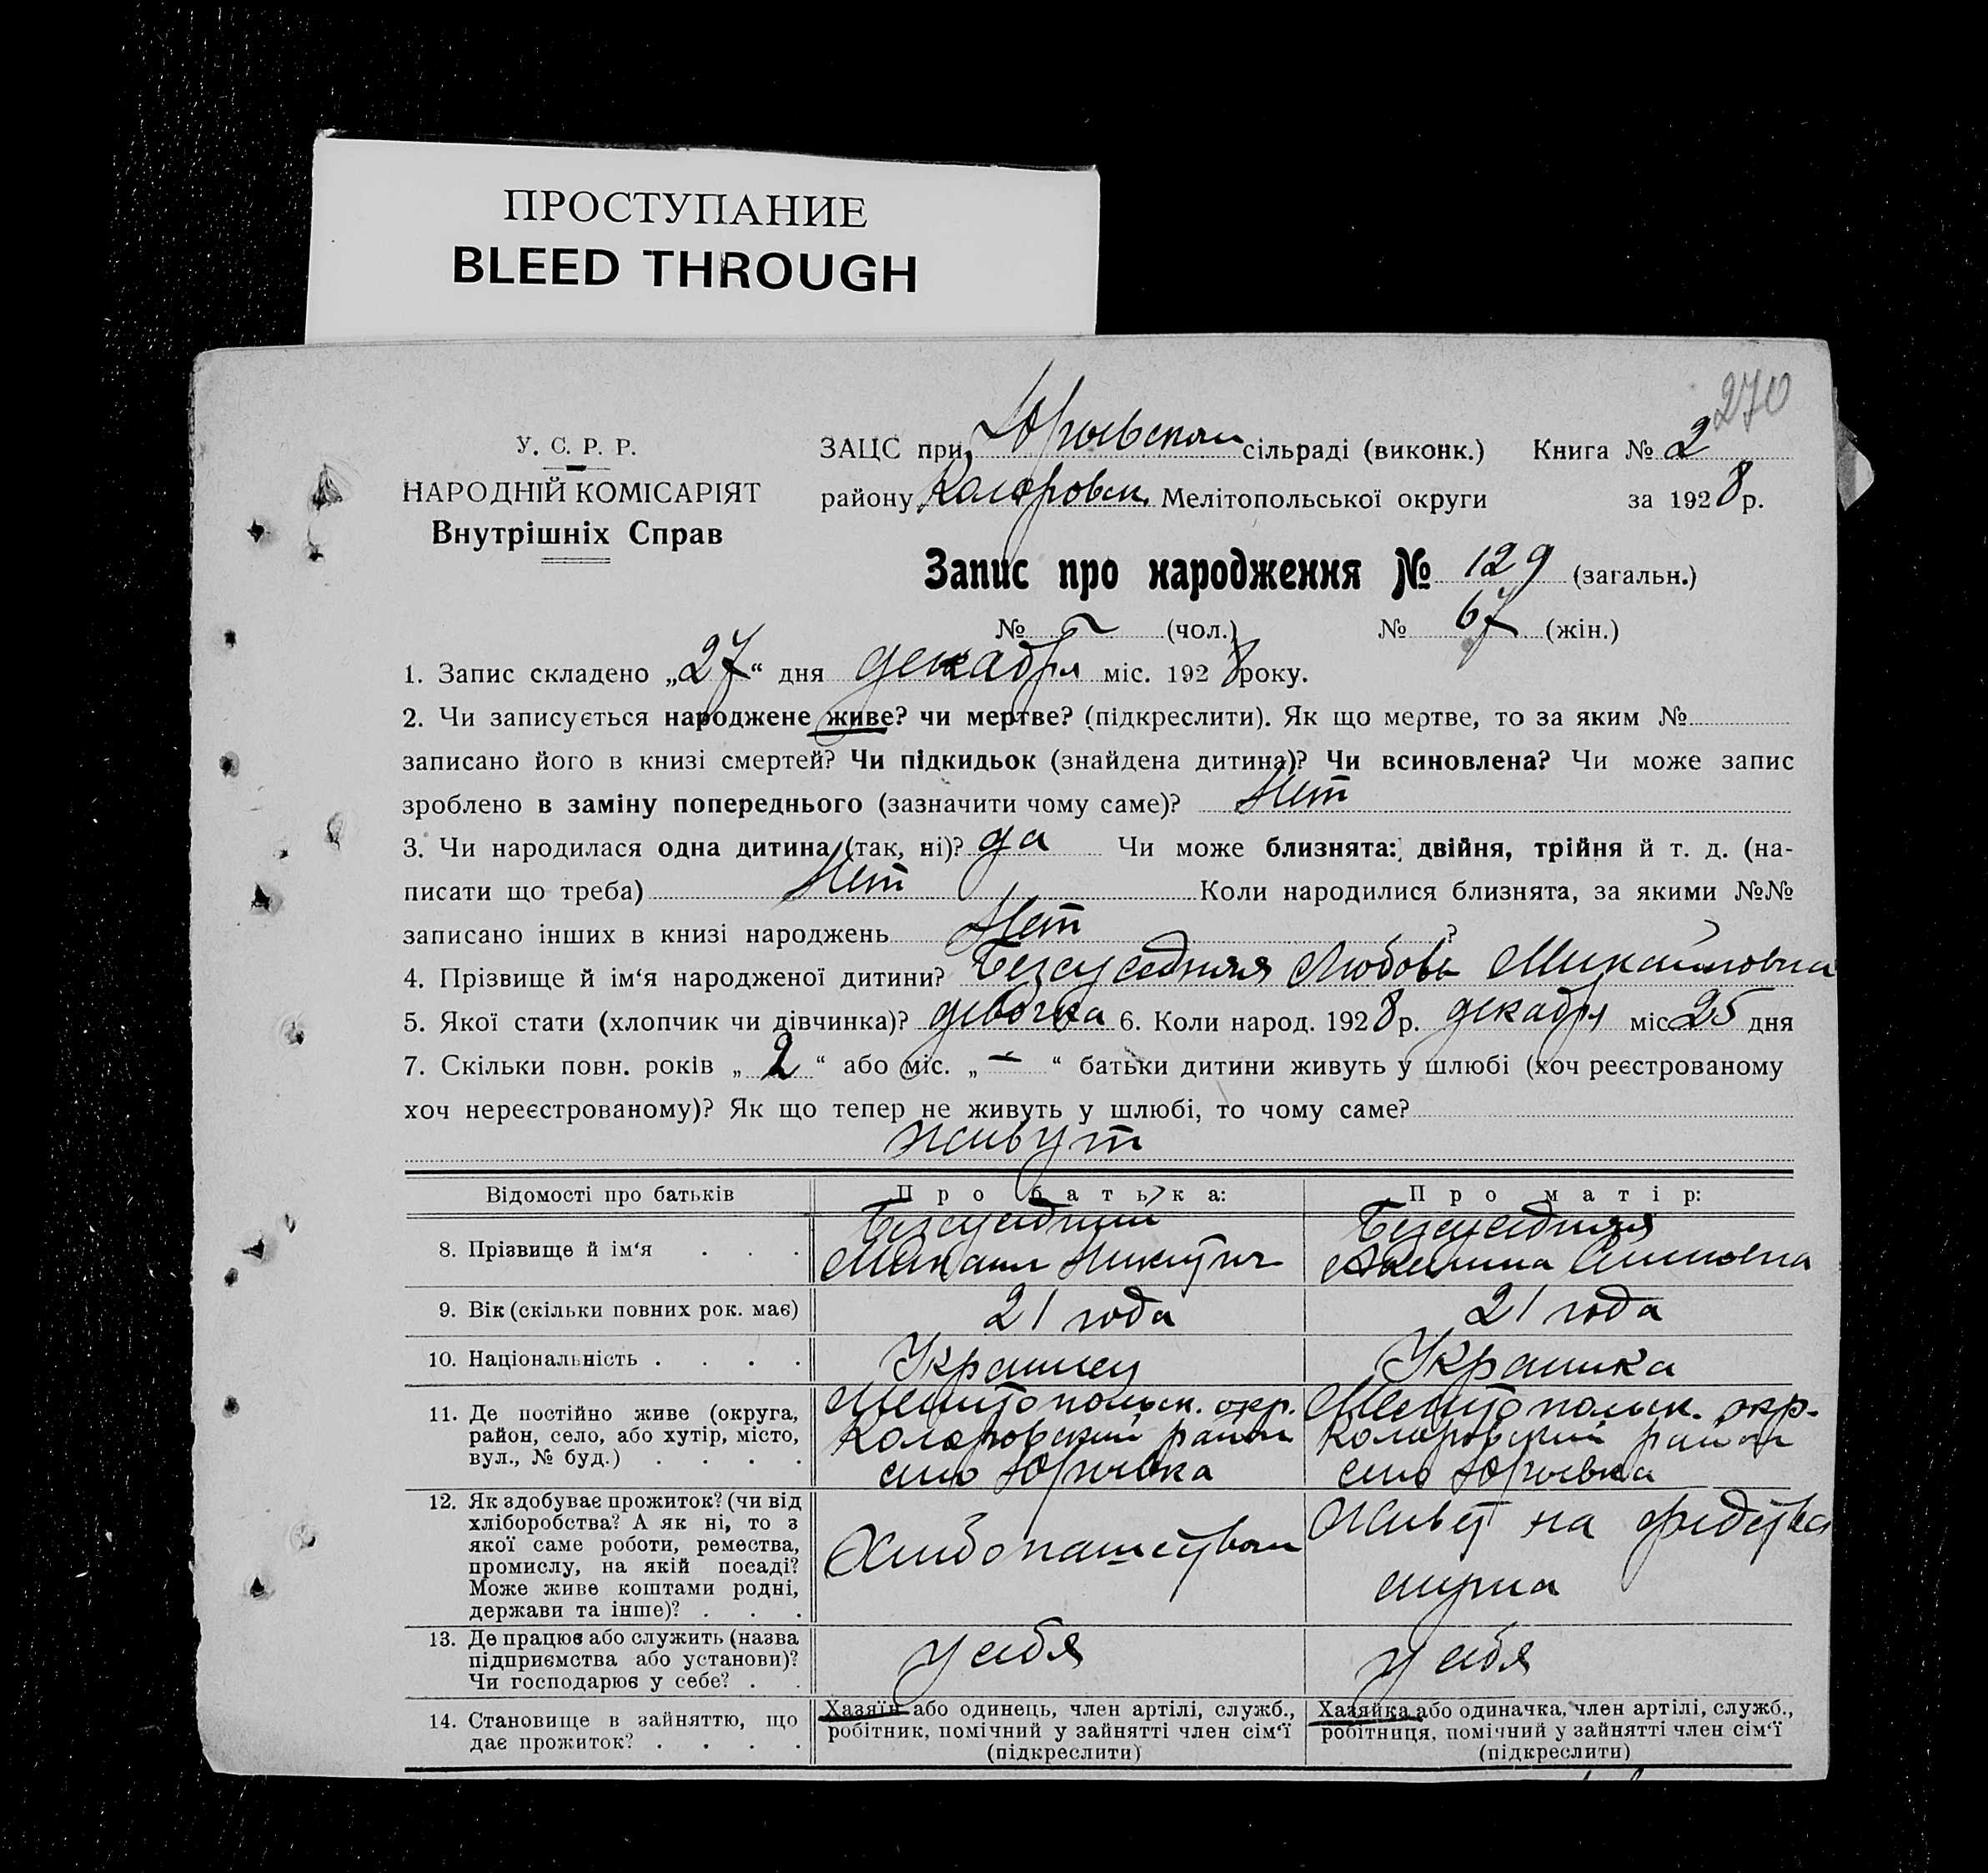 ПРОСТУПАНИЕ
BLEED THROUGH
270
У. С. Р. Р.
НАРОДНІЙ КОМІСАРІЯТ
Внутрішніх Справ
ЗАЦС при Юрьевском сільраді (виконк.) Книга № 2
району Коларовск. Мелітопольської округи за 1928 р.
Запис про народження № 129 (загальн.)
№ — (чол.) № 67 (жін.)
1. Запис складено „27“ дня декабря міс. 1928 року.
2. Чи записується народжене живе? чи мертве? (підкреслити). Як що мертве, то за яким №
записано його в книзі смертей? Чи підкидьок (знайдена дитина)? Чи всиновлена? Чи може запис
зроблено в заміну попереднього (зазначити чому саме)? Нет
3. Чи народилася одна дитина (так, ні)? да Чи може близнята: двійня, трійня й т. д. (на-
писати що треба) Нет Коли народилися близнята, за якими №№
записано інших в книзі народжень Нет ?
4. Прізвище й ім‘я народженої дитини? Безсуседняя Любовь Михайловна
5. Якої стати (хлопчик чи дівчинка)? девочка 6. Коли народ. 1928 р. декабря міс. 25 дня
7. Скільки повн. років „2“ або міс. „—“ батьки дитини живуть у шлюбі (хоч реєстрованому
хоч нереєстрованому)? Як що тепер не живуть у шлюбі, то чому саме?
живут
Відомості про батьків
Про батька:
Про матір:
8. Прізвище й ім‘я . . .
Безсуседний
Михаил Никитич
Безсуседняя
Акилина
9. Вік (скільки повних рок. має)
21 года
21 года
10. Національність . . . .
Украинец
Украинка
11. Де постійно живе (округа,
район, село, або хутір, місто,
вул., № буд.) . . . .
Мелитопольск. окр.
Коларовский район
село Юрьевка
Мелитопольск. окр.
Коларовский район
село Юрьевка
12. Як здобуває прожиток? (чи від
хліборобства? А як ні, то з
якої саме роботи, ремества,
промислу, на якій посаді?
Може живе коштами родні,
держави та інше)? . . .
Хлебопашеством
Живет на средства
мужа
13. Де працює або служить (назва
підприємства або установи)?
Чи господарює у себе? . .
у себя
у себя
14. Становище в зайняттю, що
дає прожиток? . . . .
Хазяїн або одинець, член артілі, служб.,
робітник, помічний у зайнятті член сім‘ї
(підкреслити)
Хазяйка або одиначка, член артілі, служб.,
робітниця, помічний у зайнятті член сім‘ї
(підкреслити)